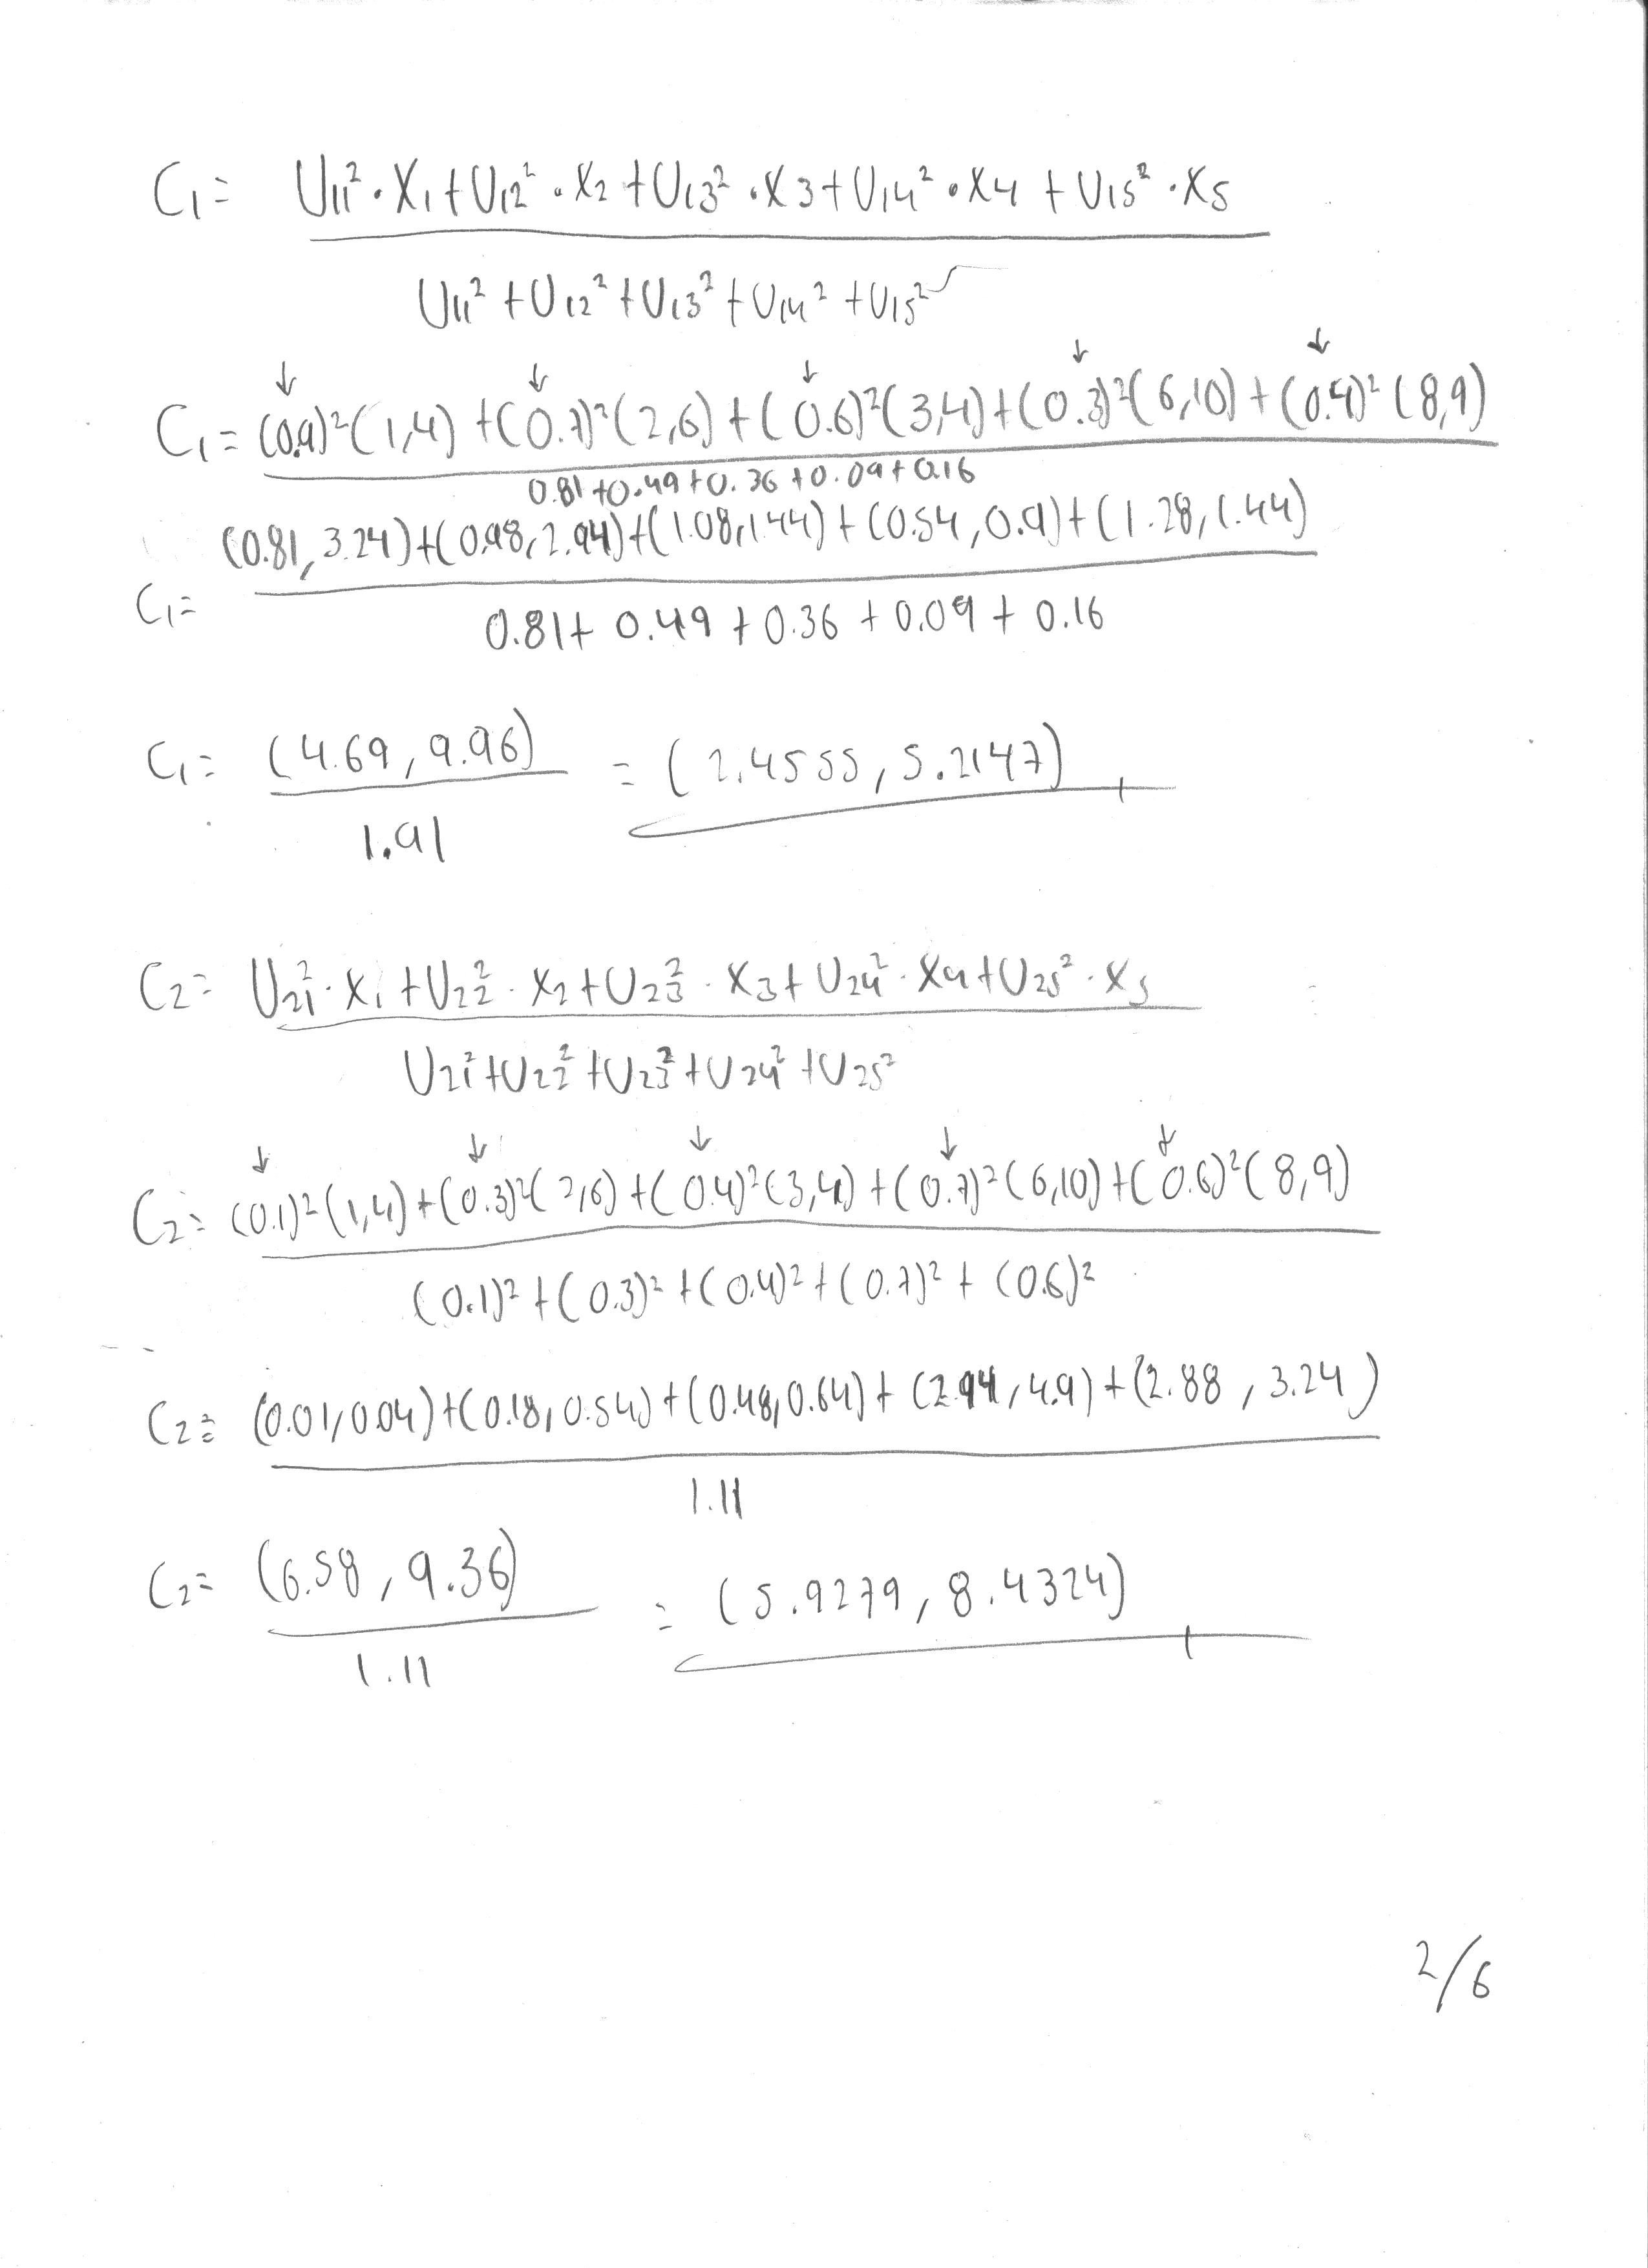 C₁ = U₁₁² · X₁ + U₁₂² · X₂ + U₁₃² · X₃ + U₁₄² · X₄ + U₁₅² · X₅
U₁₁² + U₁₂² + U₁₃² + U₁₄² + U₁₅²
↓ ↓ ↓ ↓ ↓
C₁ = (0.9)²(1,4) + (0.7)²(2,6) + (0.6)²(3,4) + (0.3)²(6,10) + (0.4)²(8,9)
0.81 + 0.49 + 0.36 + 0.09 + 0.16
(0.81, 3.24) + (0.98, 2.94) + (1.08, 1.44) + (0.54, 0.9) + (1.28, 1.44)
C₁ =
0.81 + 0.49 + 0.36 + 0.09 + 0.16
C₁ = (4.69, 9.96) = (2.4555, 5.2147)
1.91
C₂ = U₂₁² · X₁ + U₂₂² · X₂ + U₂₃² · X₃ + U₂₄² · X₄ + U₂₅² · X₅
U₂₁² + U₂₂² + U₂₃² + U₂₄² + U₂₅²
↓ ↓ ↓ ↓ ↓
C₂ = (0.1)²(1,4) + (0.3)²(2,6) + (0.4)²(3,4) + (0.7)²(6,10) + (0.6)²(8,9)
(0.1)² + (0.3)² + (0.4)² + (0.7)² + (0.6)²
C₂ = (0.01, 0.04) + (0.18, 0.54) + (0.48, 0.64) + (2.94, 4.9) + (2.88, 3.24)
1.11
C₂ = (6.58, 9.36) = (5.9279, 8.4324)
1.11
2/6